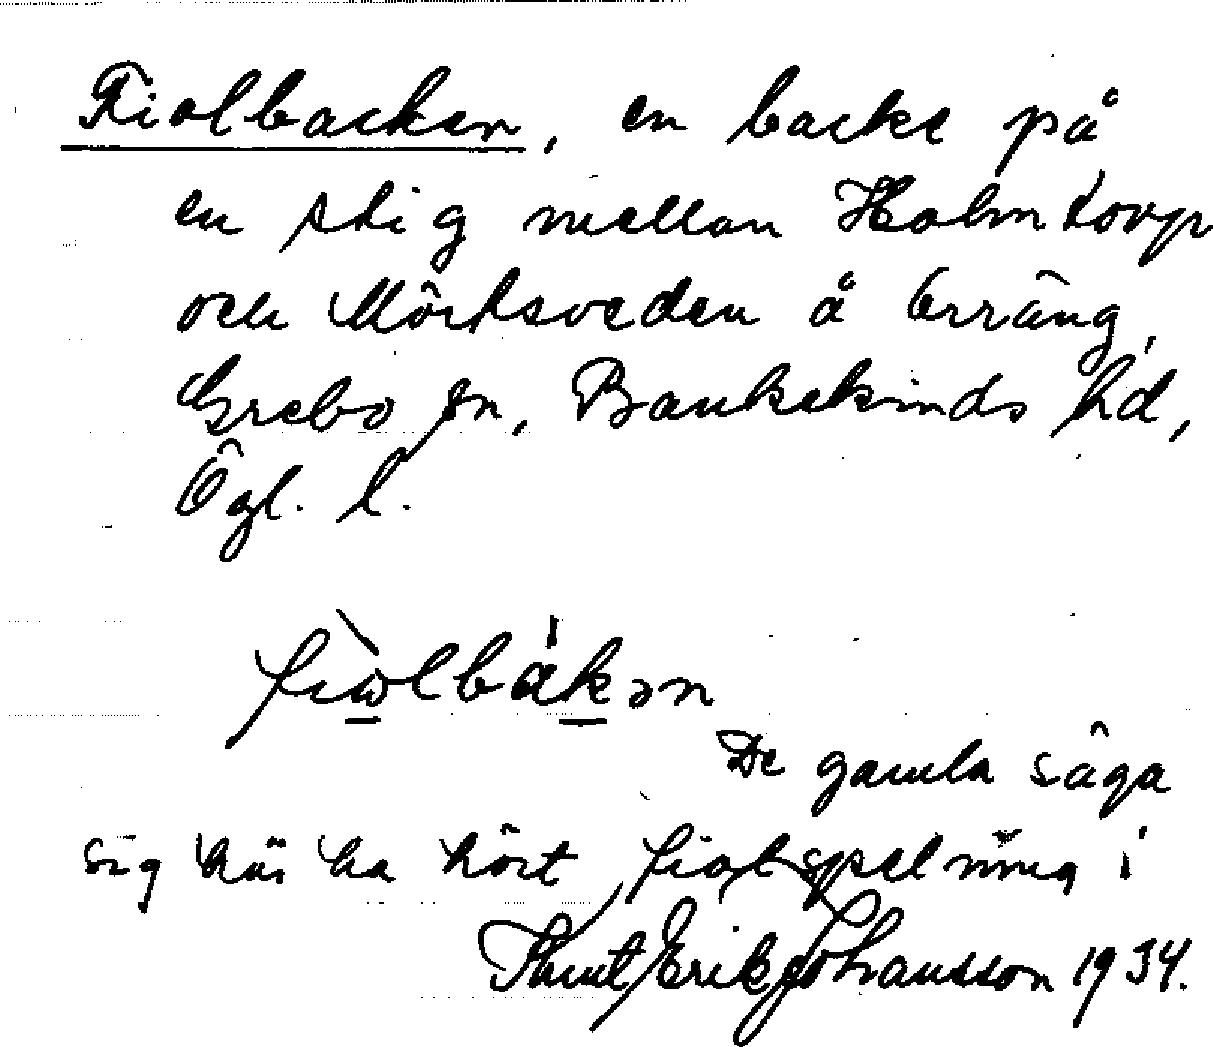 Fiolbacken, en backe på
en stig mellan Holmtorp
och Mörksveden å Erräng,
Grebo sn, Bankekinds hd,
Ögl. l.
fiωlbákən
De gamla säga
sig här ha hört fiolspelning i
Knut Erik Johansson 1934.